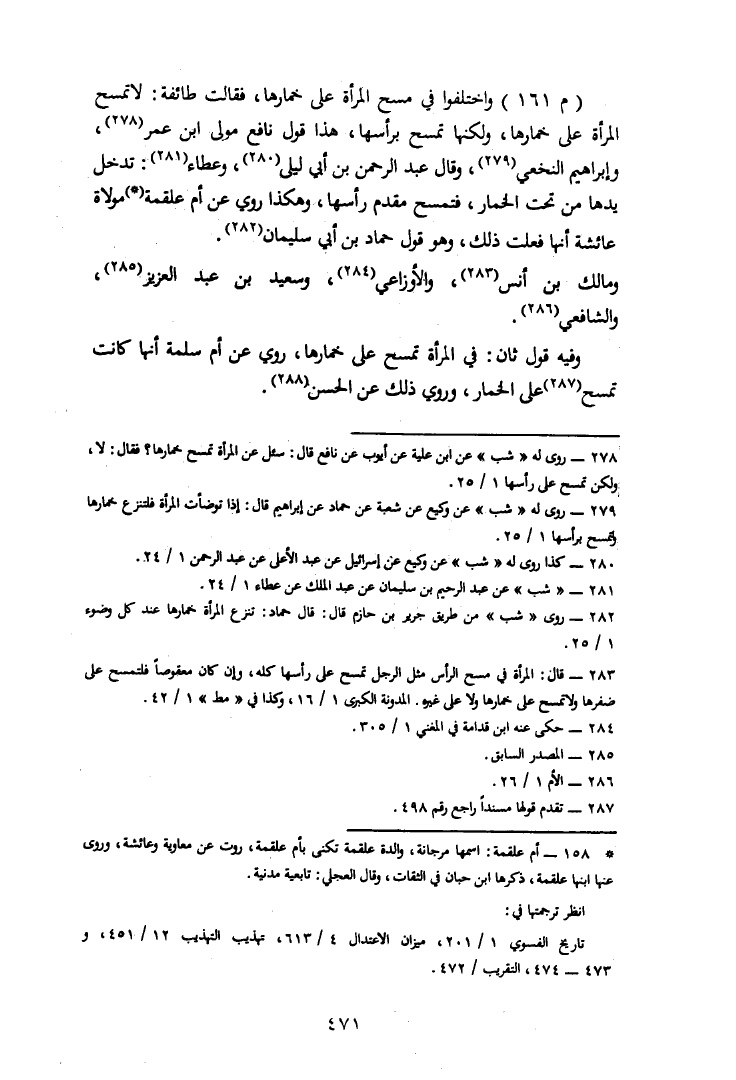 ( م ١٦١ ) واختلفوا في مسح المرأة على خمارها، فقالت طائفة: لاتمسح
المرأة على خمارها، ولكنها تمسح برأسها، هذا قول نافع مولى ابن عمر(٢٧٨)،
وإبراهيم النخعي(٢٧٩)، وقال عبد الرحمن بن أبي ليلى(٢٨٠)، وعطاء(٢٨١): تدخل
يدها من تحت الخمار، فتمسح مقدم رأسها، وهكذا روي عن أم علقمة(*)مولاة
عائشة أنها فعلت ذلك، وهو قول حماد بن أبي سليمان(٢٨٢).
ومالك بن أنس(٢٨٣)، والأوزاعي(٢٨٤)، وسعيد بن عبد العزيز(٢٨٥)،
والشافعي(٢٨٦).
وفيه قول ثان: في المرأة تمسح على خمارها، روي عن أم سلمة أنها كانت
تمسح(٢٨٧)على الخمار، وروي ذلك عن الحسن(٢٨٨).
٢٧٨ ــ روى له « شب » عن ابن علية عن أيوب عن نافع قال: سئل عن المرأة تمسح خمارها؟ فقال: لا،
ولكن تمسح على رأسها ١ / ٢٥.
٢٧٩ ــ روى له « شب » عن وكيع عن شعبة عن حماد عن إبراهيم قال: إذا توضأت المرأة فلتنزع خمارها
ولتمسح برأسها ١ / ٢٥.
٢٨٠ ــ كذا روى له « شب » عن وكيع عن إسرائيل عن عبد الأعلى عن عبد الرحمن ١ / ٢٤.
٢٨١ ــ « شب » عن عبد الرحيم بن سليمان عن عبد الملك عن عطاء ١ / ٢٤.
٢٨٢ ــ روى « شب » من طريق جرير بن حازم قال: قال حماد: تنزع المرأة خمارها عند كل وضوء
١ / ٢٥.
٢٨٣ ــ قال: المرأة في مسح الرأس مثل الرجل تمسح على رأسها كله، وإن كان معقوصاً فلتمسح على
ضفرها ولاتمسح على خمارها ولا على غيره. المدونة الكبرى ١ / ١٦، وكذا في « مط » ١ / ٤٢.
٢٨٤ ــ حكى عنه ابن قدامة في المغني ١ / ٣٠٥.
٢٨٥ ــ المصدر السابق.
٢٨٦ ــ الأم ١ / ٢٦.
٢٨٧ ــ تقدم قولها مسنداً راجع رقم ٤٩٨.
* ١٥٨ ــ أم علقمة: اسمها مرجانة، والدة علقمة تكنى بأم علقمة، روت عن معاوية وعائشة، وروى
عنها ابنها علقمة، ذكرها ابن حبان في الثقات، وقال العجلي: تابعية مدنية.
انظر ترجمتها في:
تاريخ الفسوي ١ / ٢٠١، ميزان الاعتدال ٤ / ٦١٣، تهذيب التهذيب ١٢ / ٤٥١، و
٤٧٣ ــ ٤٧٤، التقريب / ٤٧٢.
٤٧١